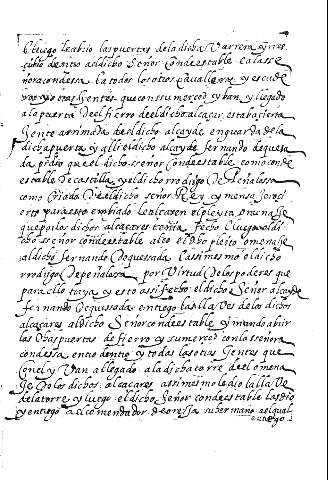 E luego le abrio las puertas de la dicha varrera y rres
cibio dentro al dicho señor condestable e a la se
ñora condessa E a todos los otros cavalleros y escude
ros y otras gentes que con su merced yban y llegado
a la puerta del fierro del dicho alcaçar estaba cierta
gente arrimada del dicho alcayde en guarda de la
dicha puerta y alli el dicho alcayde fernando de quesa
da pidio que el dicho señor condestable como conde
estable de castilla y el dicho rrodrigo de Peñalosa
como criado del dicho señor Rey y mensajero ci
erto para esto embiado le alcasen el pleyto omenaje
que por los dichos alcaçares tenia fecho E luego el di
cho señor condestable alço el dho pleito omenaje
al dicho fernando de quesada E assi mesmo el dicho
rrodrigo de peñalosa por virtud de los poderes que
para ello traya y esto assi fecho el dicho señor alcayde
fernando de quessada entrego las llaves de los dichos
alcaçares al dicho Señor condestable y mando abrir
las dhas puertas de fierro y su merced con la señora
condessa entro dentro y todas las otras gentes que
con el yvan a llegado a la dicha torre del omena
je de los dichos alcaçares assi mesmo le dio la llave
de la torre y luego el dicho señor condestable las dio
y entrego a el comendador de oreja su hermano al qual